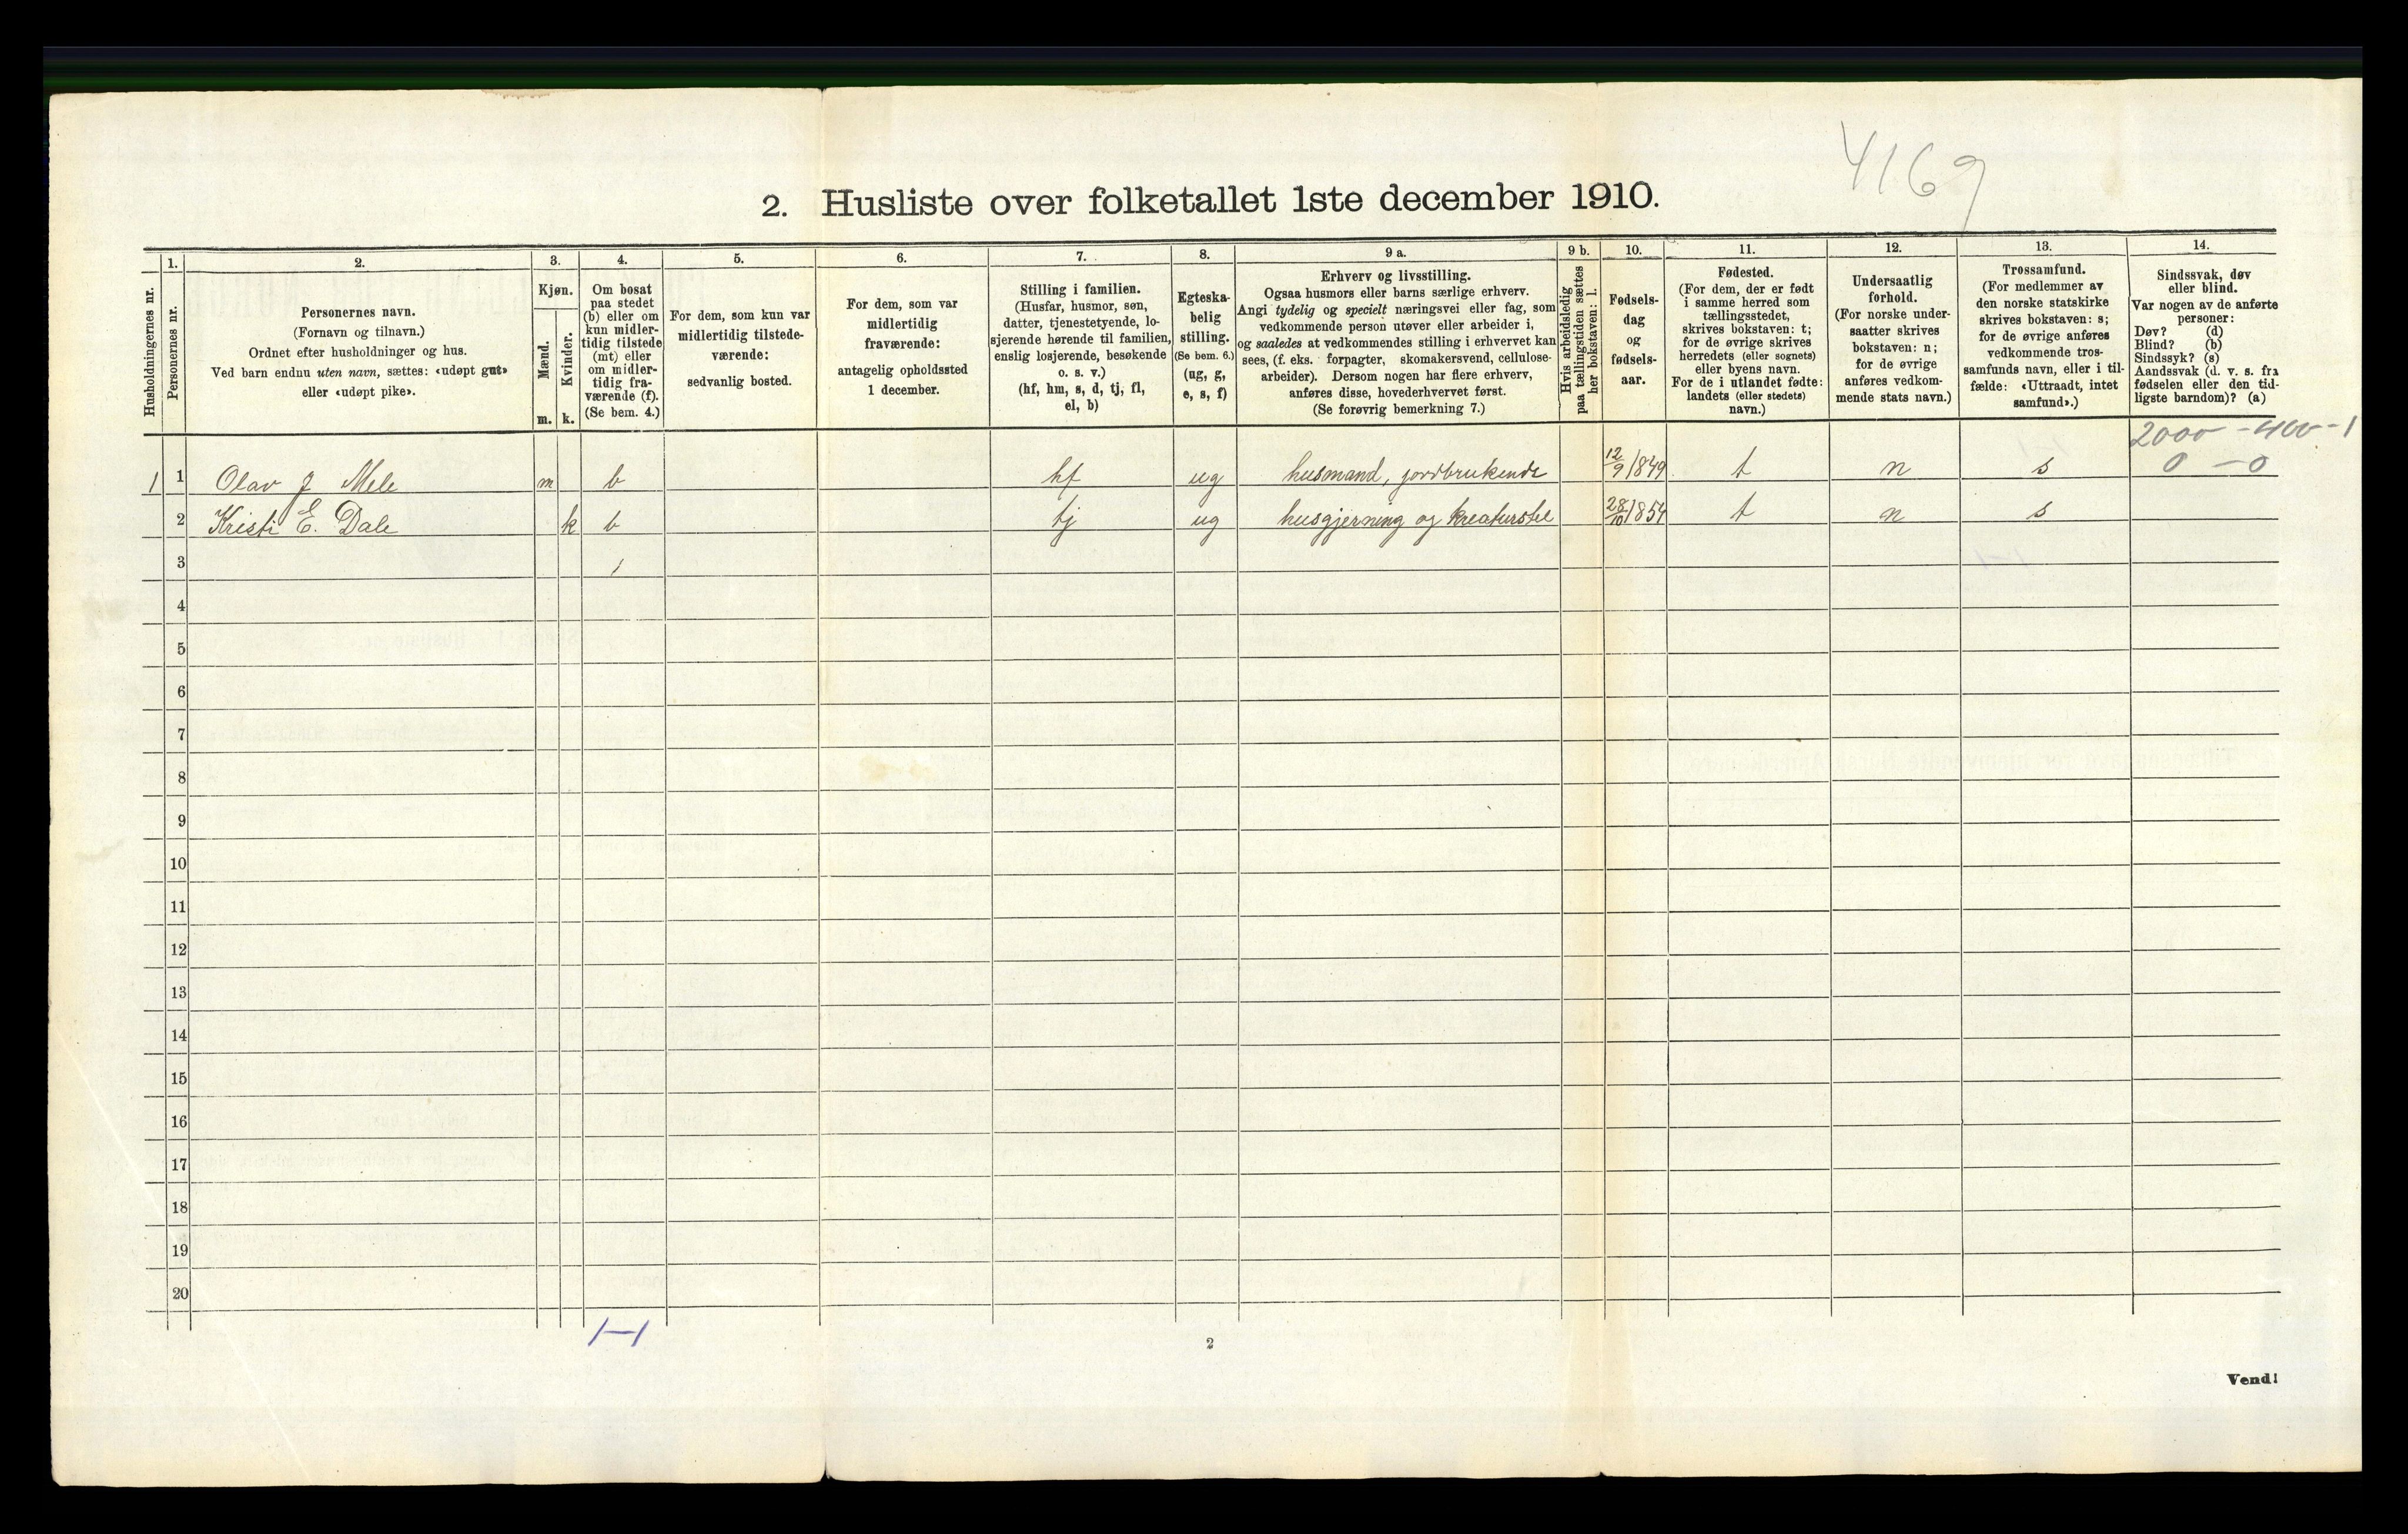 4169
2. Husliste over folketallet 1ste december 1910.
Husholdningernes nr.
1.
Personernes nr.
2.
Personernes navn.
(Fornavn og tilnavn.)
Ordnet efter husholdninger og hus.
Ved barn endnu uten navn, sættes: «udøpt gut»
eller «udøpt pike».
3.
Kjøn.
Mænd.
Kvinder.
m. k.
4.
Om bosat
paa stedet
(b) eller om
kun midler-
tidig tilstede
(mt) eller
om midler-
tidig fra-
værende (f).
(Se bem. 4.)
5.
For dem, som kun var
midlertidig tilstede-
værende:
sedvanlig bosted.
6.
For dem, som var
midlertidig
fraværende:
antagelig opholdssted
1 december.
7.
Stilling i familien.
(Husfar, husmor, søn,
datter, tjenestetyende, lo-
sjerende hørende til familien,
enslig losjerende, besøkende
o. s. v.)
(hf, hm, s, d, tj, fl,
el, b)
8.
Egteska-
belig
stilling.
(Se bem. 6.)
(ug, g,
e, s, f)
9 a.
Erhverv og livsstilling.
Ogsaa husmors eller barns særlige erhverv.
Angi tydelig og specielt næringsvei eller fag, som
vedkommende person utøver eller arbeider i,
og saaledes at vedkommendes stilling i erhvervet kan
sees, (f. eks. forpagter, skomakersvend, cellulose-
arbeider). Dersom nogen har flere erhverv,
anføres disse, hovederhvervet først.
(Se forøvrig bemerkning 7.)
9 b.
Hvis arbeidsledig
paa tællingstiden sættes
her bokstaven: l.
10.
Fødsels-
dag
og
fødsels-
aar.
11.
Fødested.
(For dem, der er født
i samme herred som
tællingsstedet,
skrives bokstaven: t;
for de øvrige skrives
herredets (eller sognets)
eller byens navn.
For de i utlandet fødte:
landets (eller stedets)
navn.)
12.
Undersaatlig
forhold.
(For norske under-
saatter skrives
bokstaven: n;
for de øvrige
anføres vedkom-
mende stats navn.)
13.
Trossamfund.
(For medlemmer av
den norske statskirke
skrives bokstaven: s;
for de øvrige anføres
vedkommende tros-
samfunds navn, eller i til-
fælde: «Uttraadt, intet
samfund».)
14.
Sindssvak, døv
eller blind.
Var nogen av de anførte
personer:
Døv? (d)
Blind? (b)
Sindssyk? (s)
Aandssvak (d. v. s. fra
fødselen eller den tid-
ligste barndom)? (a)
2000 - 400 - 1
1 1 Olav J Mele m b hf ug husmand, jordbrukende 12/9 1849 t n s 0 - 0
2 Kristi E. Dale k b tj ug husgjerning og kreaturstel 28/10 1854 t n s
3
4
5
6
7
8
9
10
11
12
13
14
15
16
17
18
19
20
1-1
2
Vend!